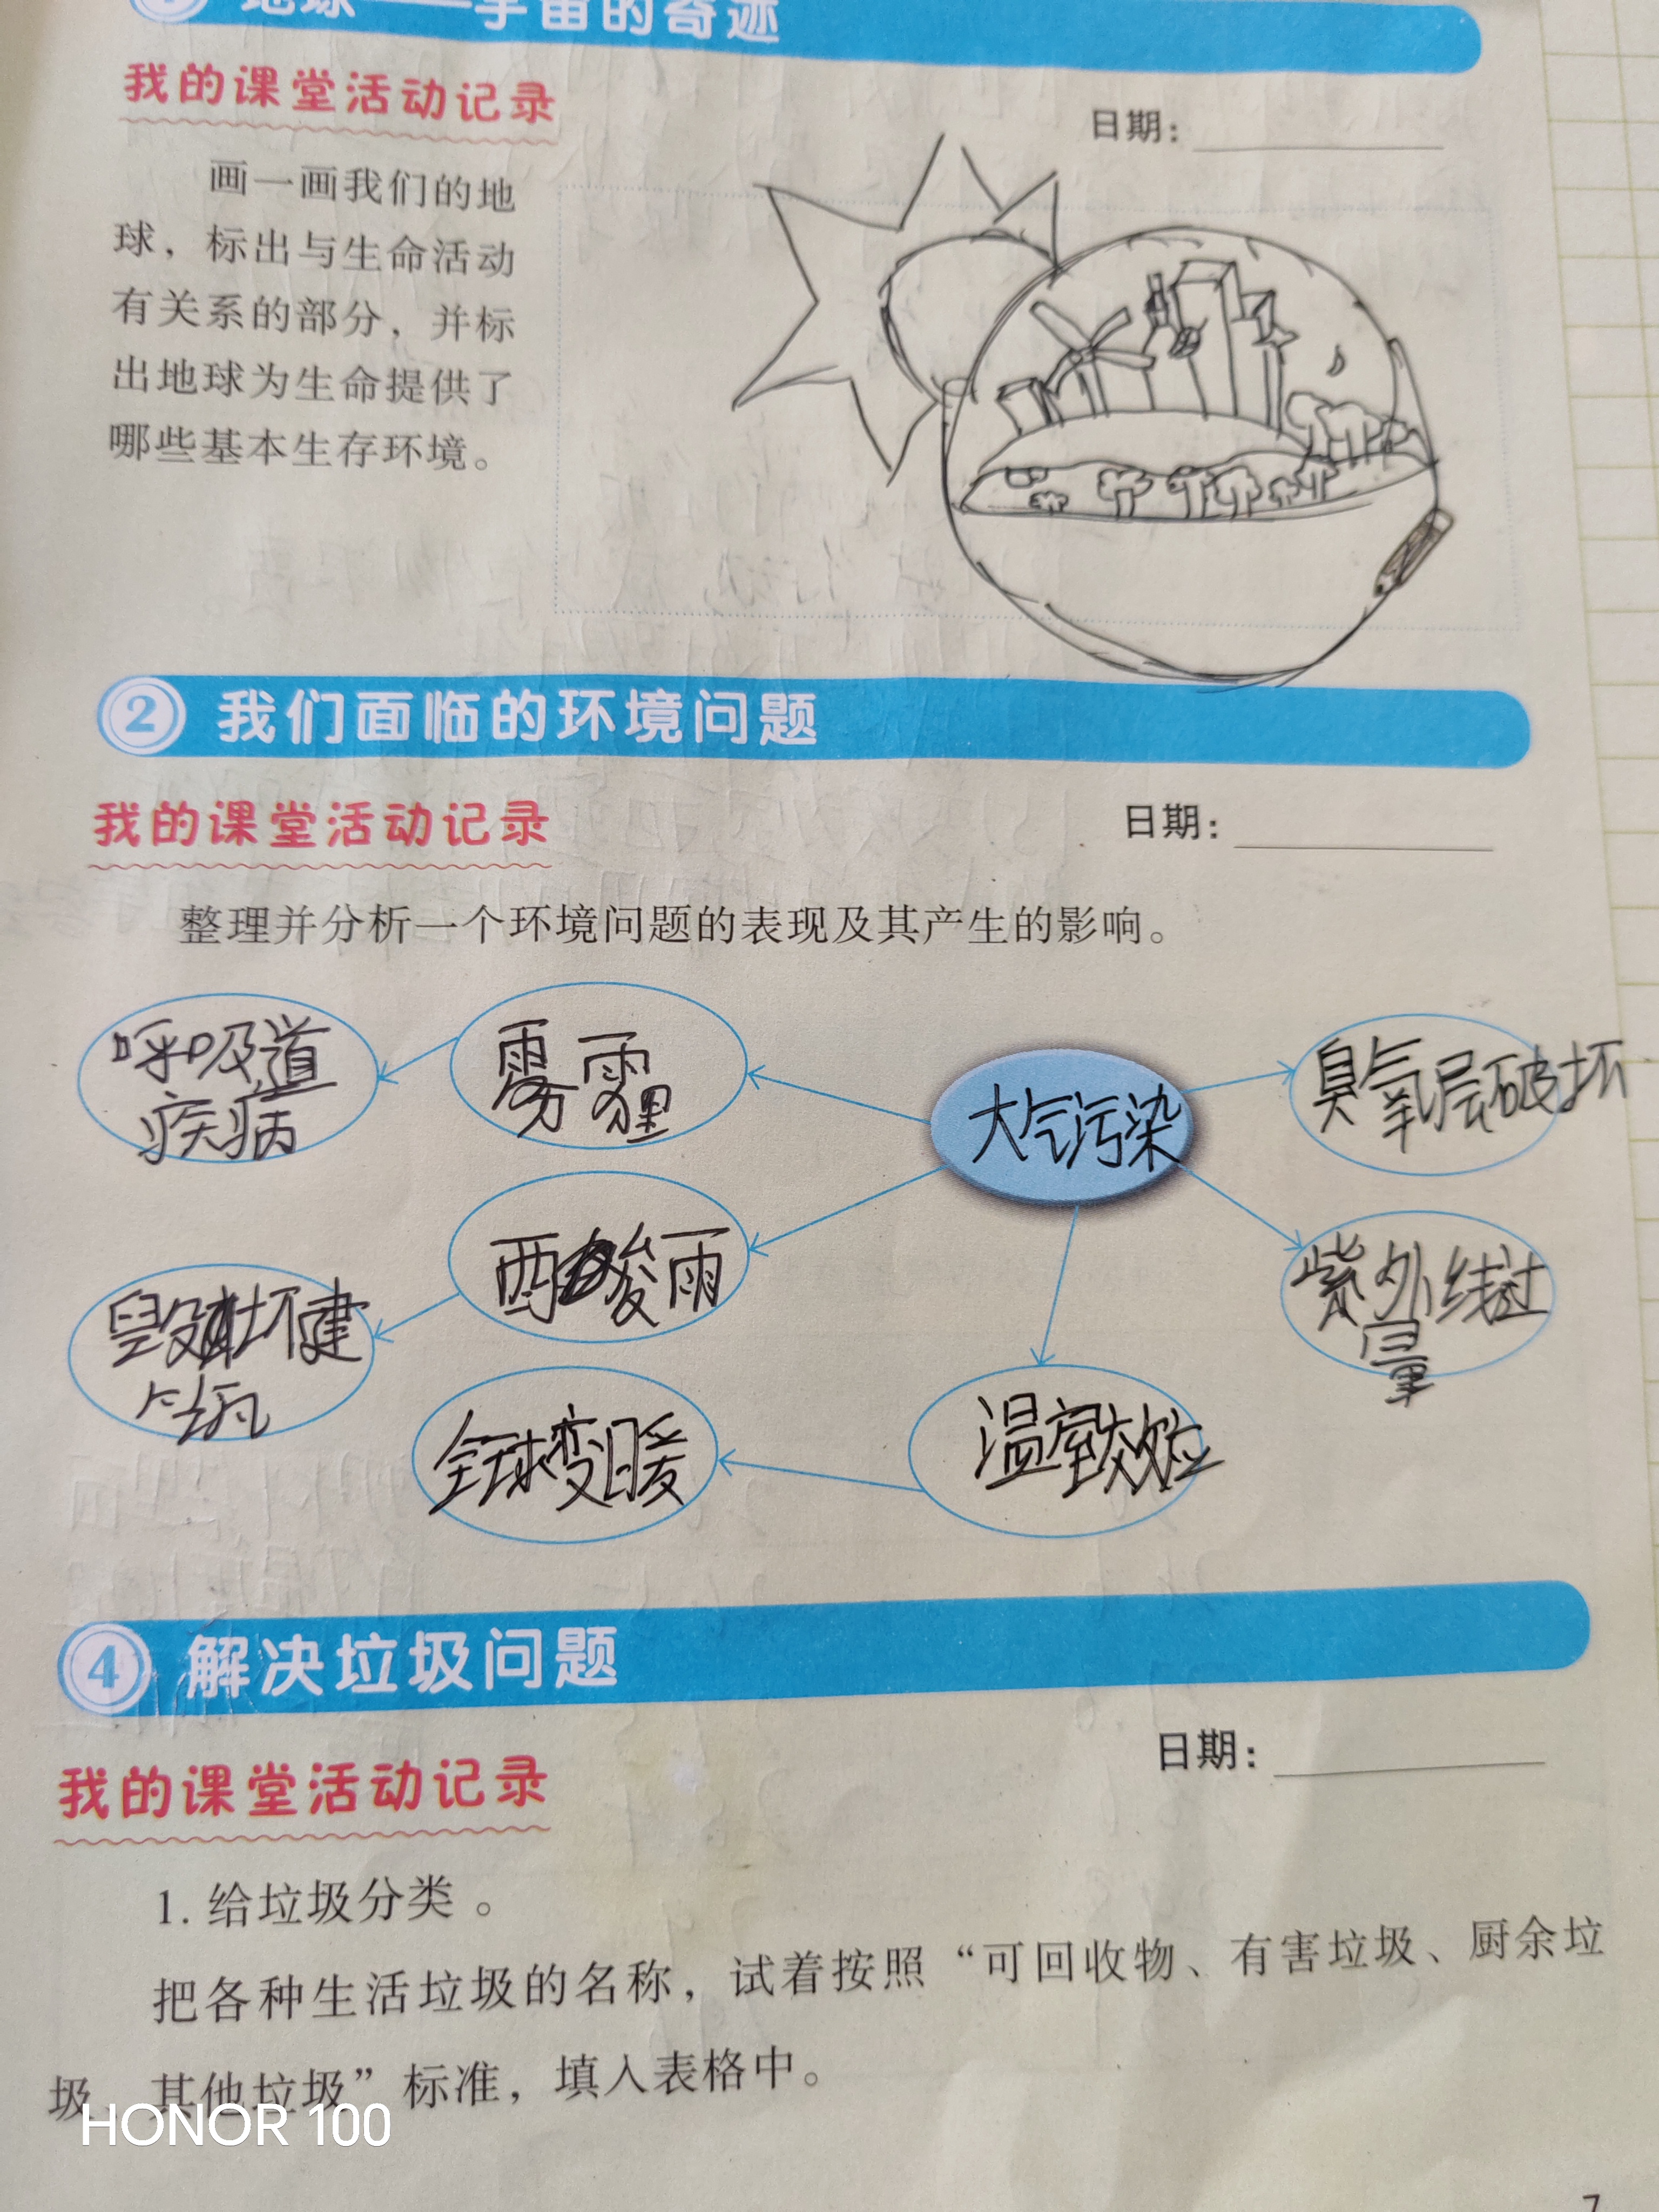 地球——宇宙的奇迹
我的课堂活动记录
日期：
画一画我们的地
球，标出与生命活动
有关系的部分，并标
出地球为生命提供了
哪些基本生存环境。
2 我们面临的环境问题
我的课堂活动记录
日期：
整理并分析一个环境问题的表现及其产生的影响。
呼吸道
疾病
雾霾
大气污染
臭氧层破坏
酸雨
毁坏建
紫外线过
量
全球变暖
温室效应
4 解决垃圾问题
我的课堂活动记录
日期：
1. 给垃圾分类。
把各种生活垃圾的名称，试着按照“可回收物、有害垃圾、厨余垃
圾、其他垃圾”标准，填入表格中。
HONOR 100
7